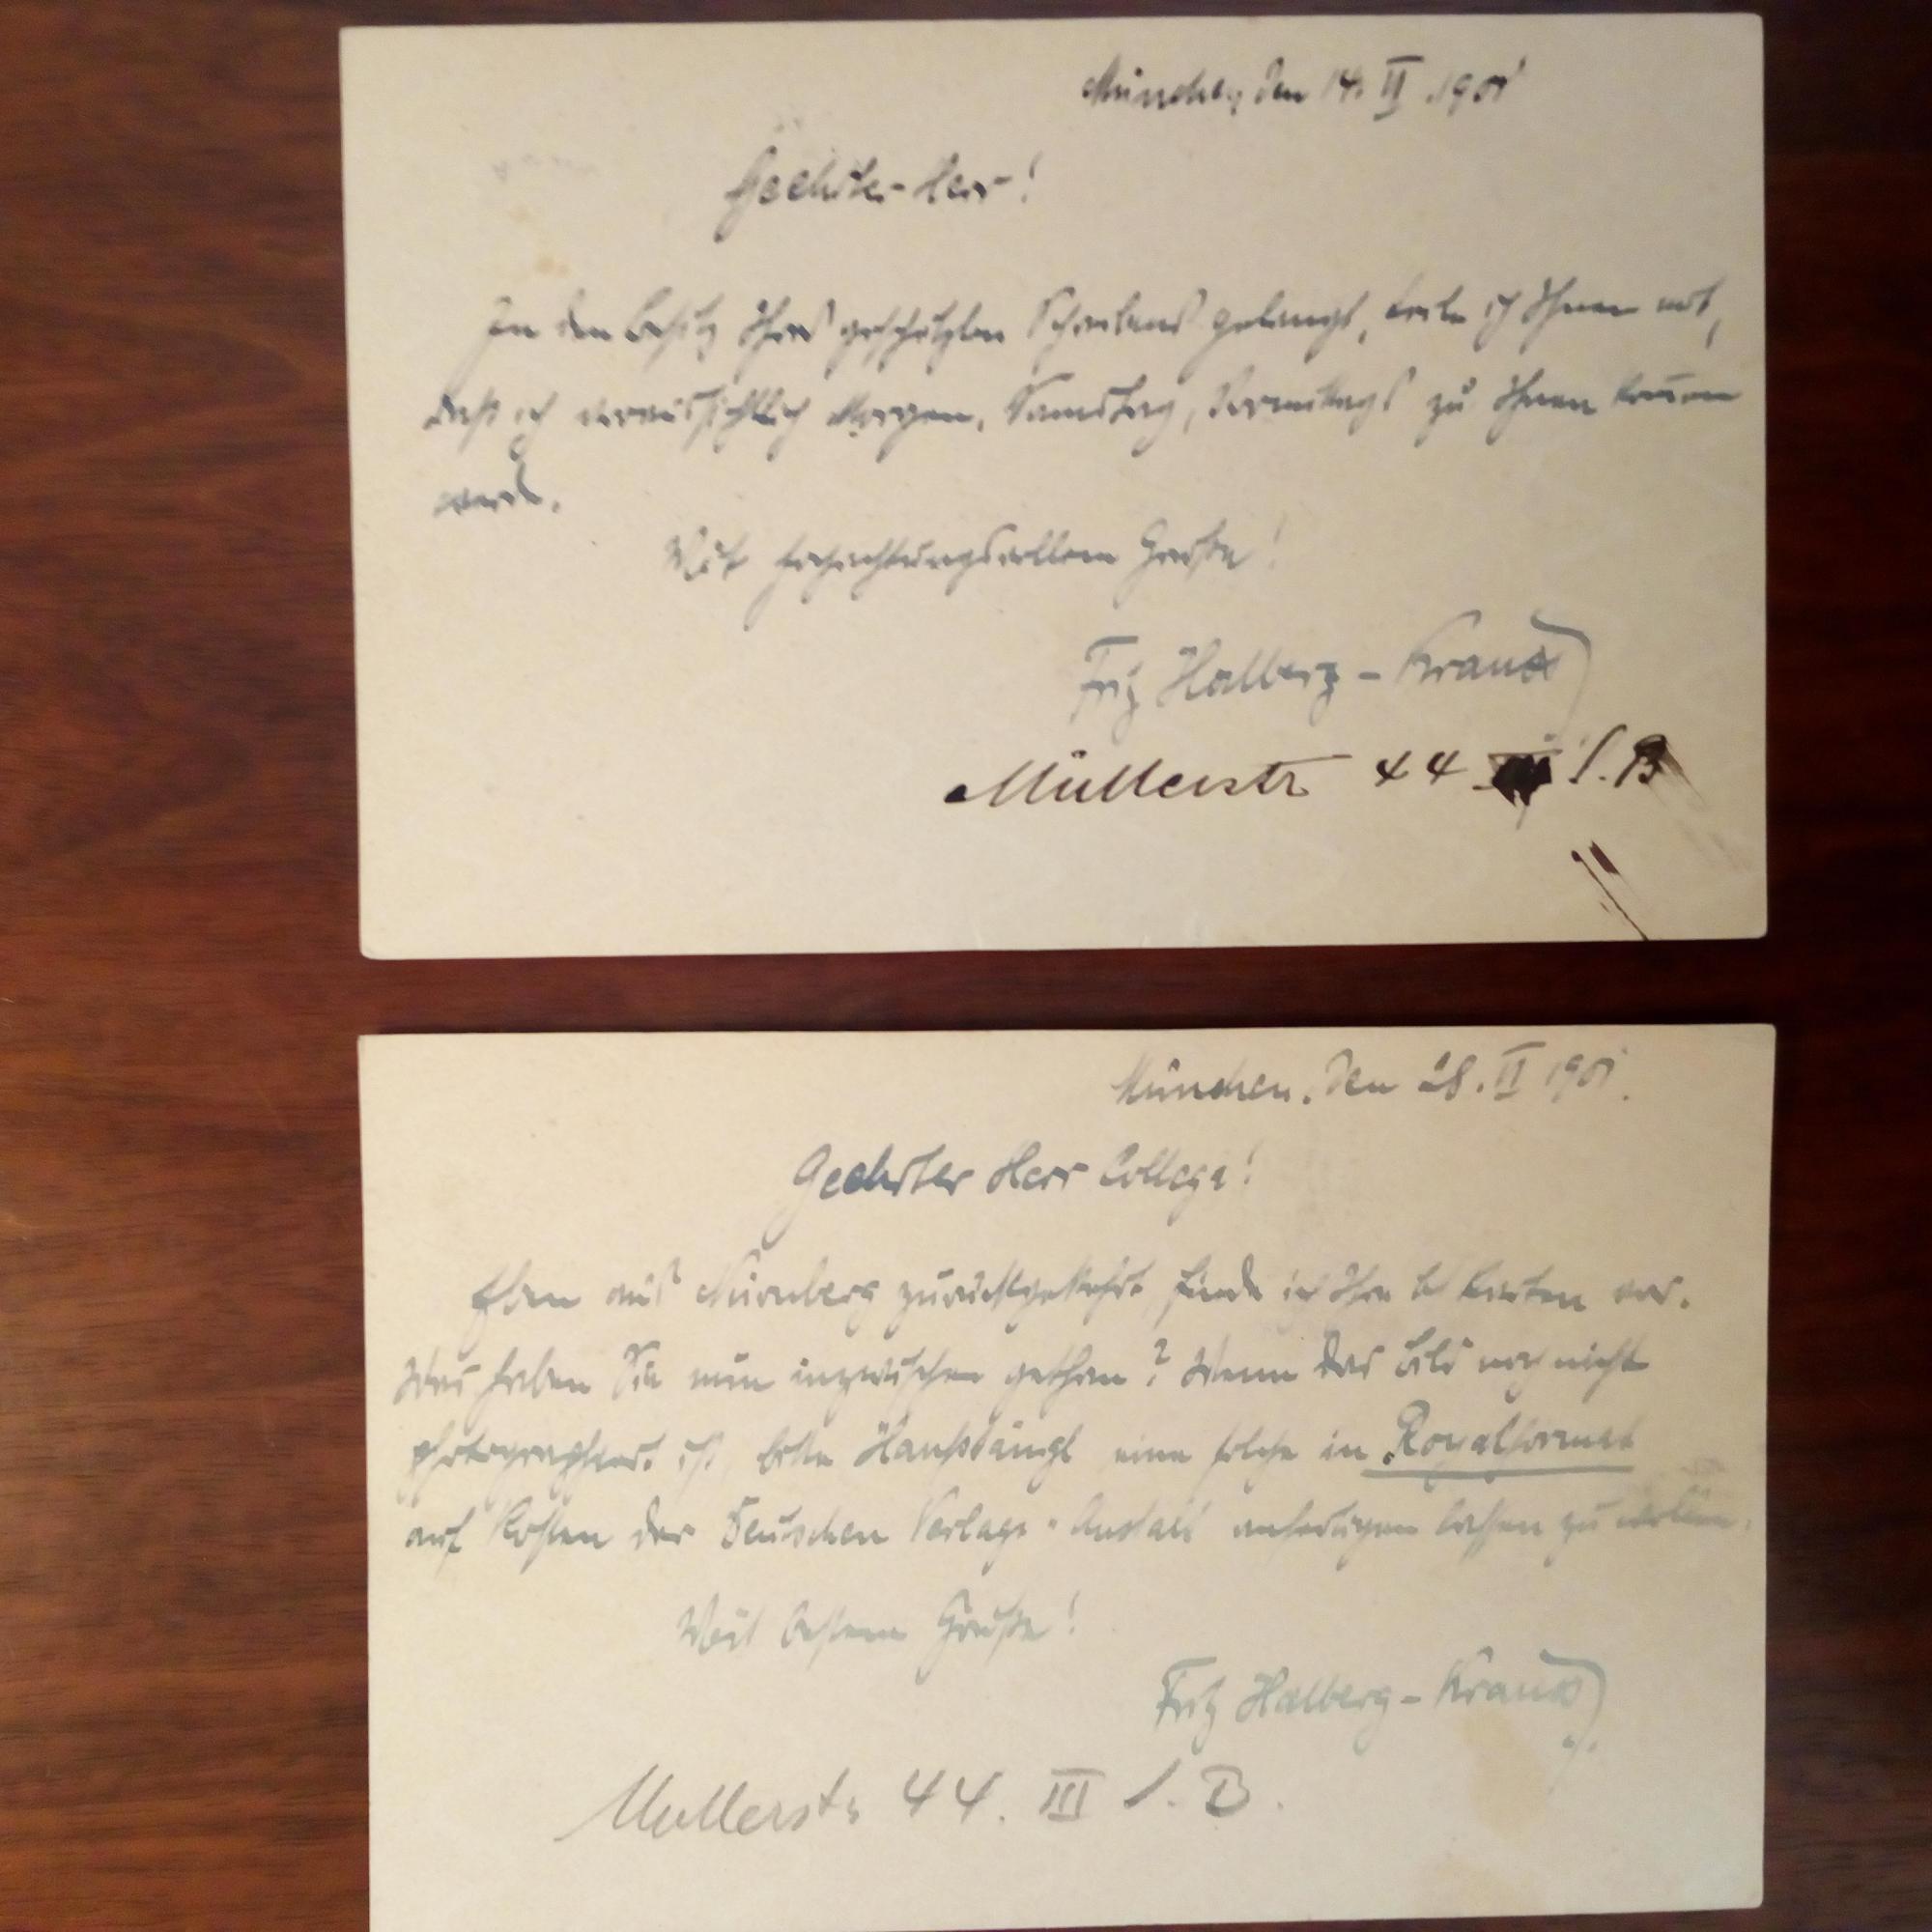 München, den 14. II. 1901
Geehrter Herr!
In den Besitz Ihres geschätzten Schreibens gelangt, teile ich Ihnen mit,
daß ich voraussichtlich Morgen, Samstag, Vormittags zu Ihnen kom̄en
werde.
Mit hochachtungsvollem Gruße!
Fritz Halberg-Krauss
Müllerstr 44 l. B
München, den 28. II 1901.
Geehrter Herr Collega!
Eben aus Nürnberg zurückgekehrt, finde ich Ihre Karten vor.
Was haben Sie nun inzwischen gethan? Wenn das Bild noch nicht
photographiert ist, bitte Hanfstängl eine solche in Royalformat
auf Kosten der Deutschen Verlags-Anstalt anfertigen lassen zu wollen.
Mit bestem Gruße!
Fritz Halberg-Krauss
Müllerstr 44. III l. B.